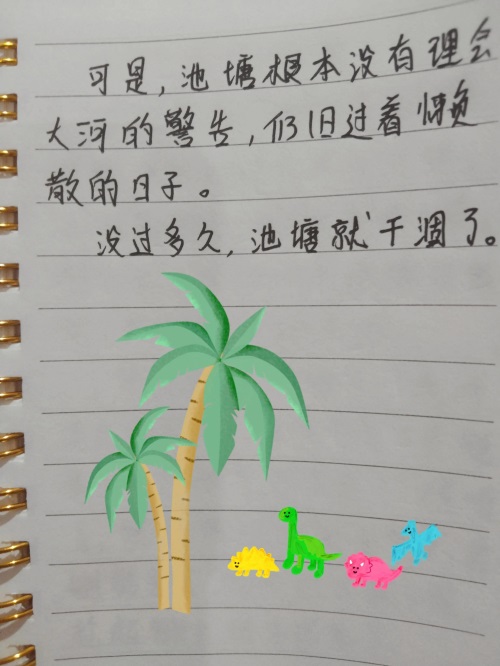 可是，池塘根本没有理会
大河的警告，仍旧过着懒
散的日子。
没过多久，池塘就干涸了。